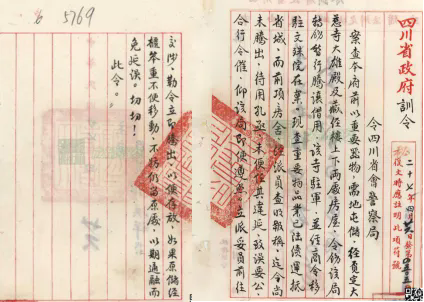 四川省政府訓令
令四川省會警察局
案查本府前以重要器物，需地屯儲，經覓定大
慈寺大雄殿及藏經樓上下兩廊房屋，令飭該局
轉飭暫行騰讓借用，該寺駐軍，並經商令移
駐文殊院在案。現查重要物品業已陸續運抵
省城，而前項房舍，經派員查收報稱，迄今尚
未騰出，待用孔亟，未便任其違延，致誤要公，
合行令催，仰該局即便遵照，立派妥員前往
交涉，勒令立即騰出，以便存放，如果原儲經
櫃笨重不便移動，不妨仍留原處，以期通融而
免延誤。切切！
此令。
6 5769